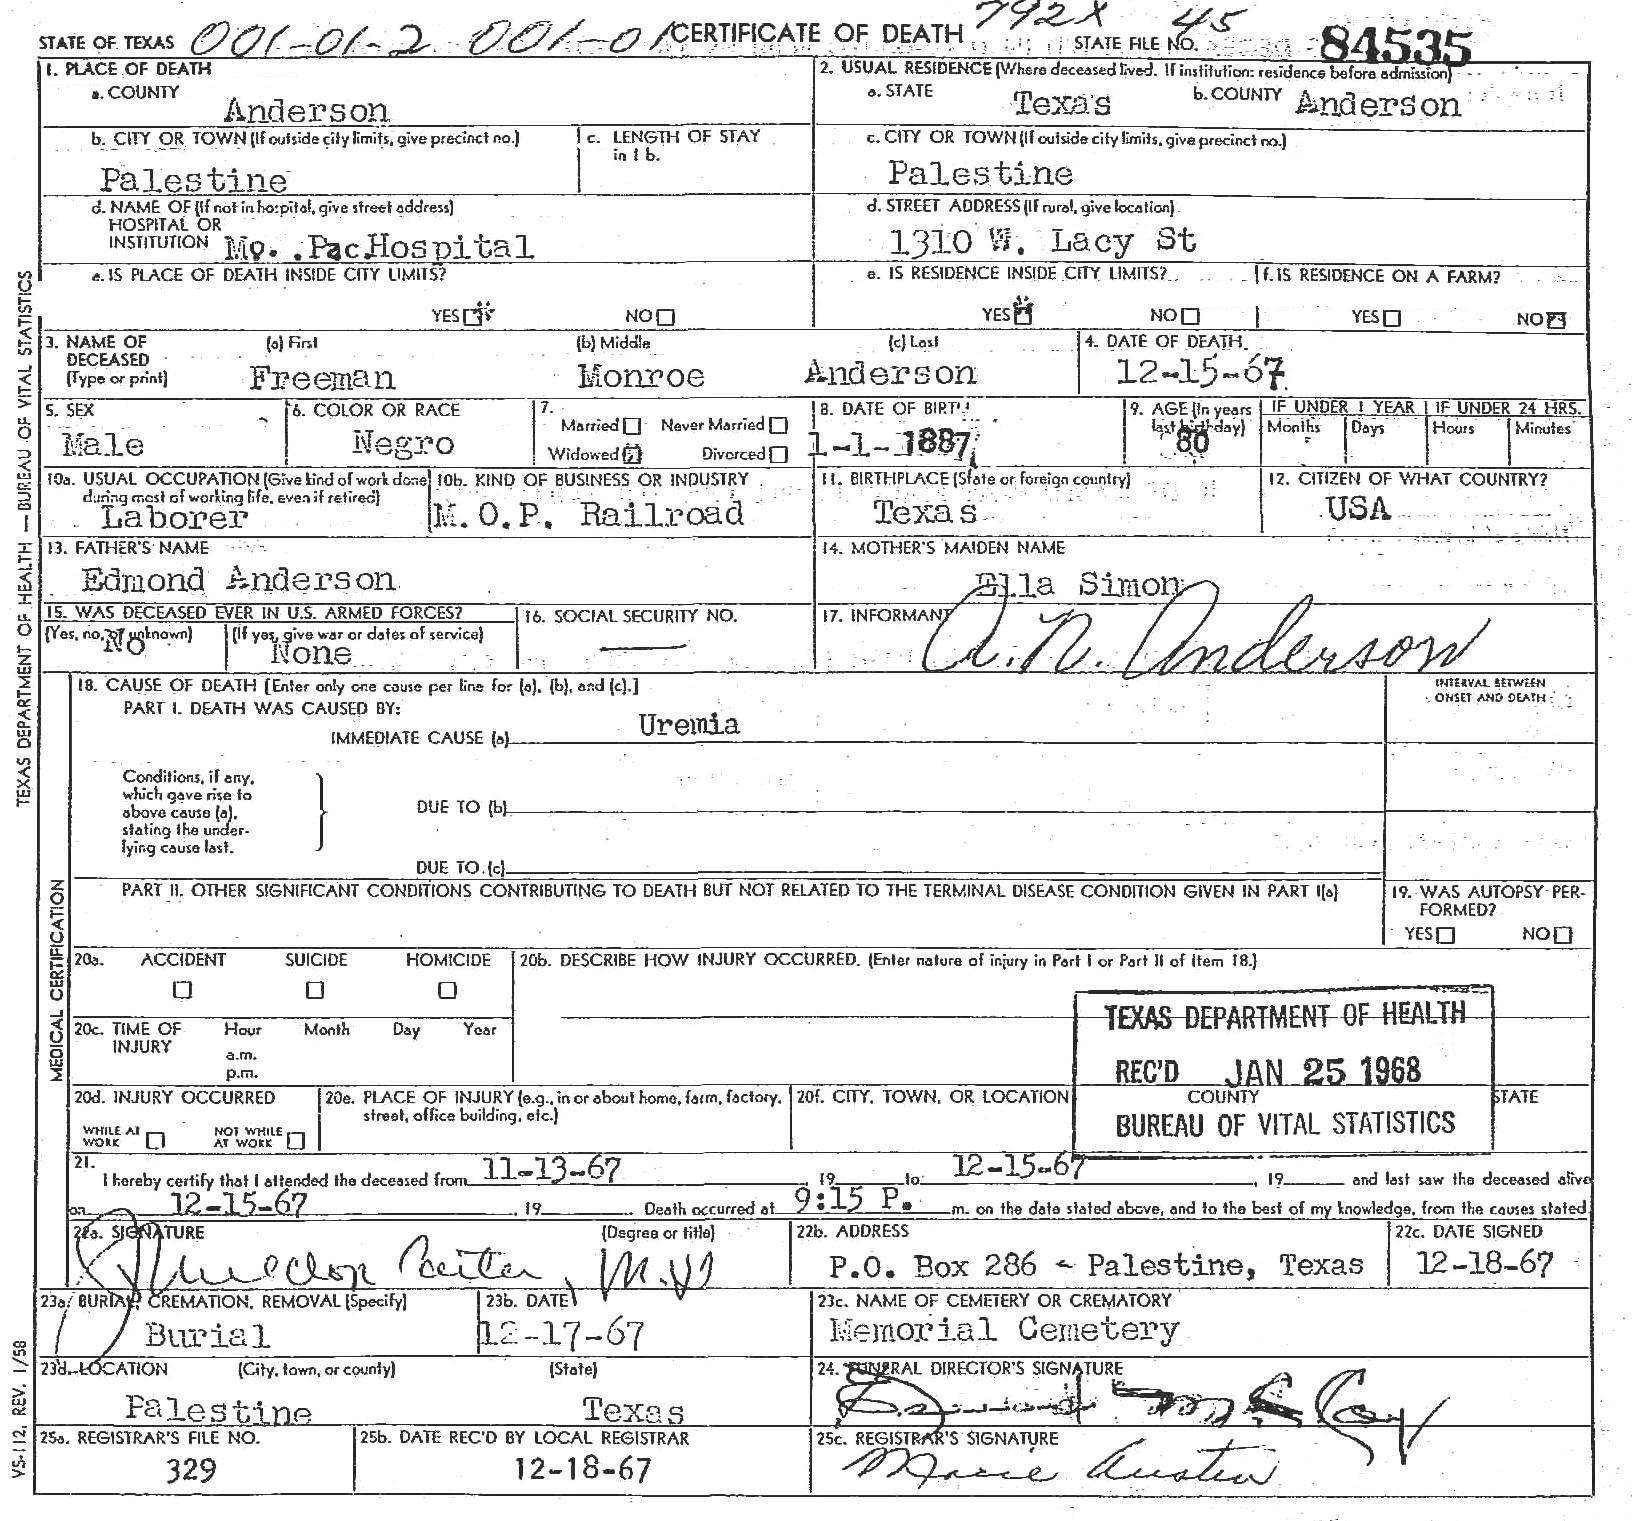 792X 45
STATE OF TEXAS 001-01-2 001-01 CERTIFICATE OF DEATH STATE FILE NO. 84535
1. PLACE OF DEATH
a. COUNTY
Anderson
b. CITY OR TOWN (If outside city limits, give precinct no.)
Palestine
c. LENGTH OF STAY in 1 b.
d. NAME OF (If not in hospital, give street address)
HOSPITAL OR
INSTITUTION Mo. .Pac.Hospital
e. IS PLACE OF DEATH INSIDE CITY LIMITS?
YES NO
2. USUAL RESIDENCE (Where deceased lived. If institution: residence before admission)
a. STATE Texas b. COUNTY Anderson
c. CITY OR TOWN (If outside city limits, give precinct no.)
Palestine
d. STREET ADDRESS (If rural, give location)
1310 W. Lacy St
e. IS RESIDENCE INSIDE CITY LIMITS?
YES NO
f. IS RESIDENCE ON A FARM?
YES NO
3. NAME OF DECEASED (Type or print)
(a) First (b) Middle (c) Last
Freeman Monroe Anderson
4. DATE OF DEATH
12-15-67
5. SEX
Male
6. COLOR OR RACE
Negro
7.
Married Never Married
Widowed Divorced
8. DATE OF BIRTH
1-1-1887
9. AGE (In years last birthday)
80
IF UNDER 1 YEAR IF UNDER 24 HRS.
Months Days Hours Minutes
10a. USUAL OCCUPATION (Give kind of work done
during most of working life, even if retired)
Laborer
10b. KIND OF BUSINESS OR INDUSTRY
M.O.P. Railroad
11. BIRTHPLACE (State or foreign country)
Texas
12. CITIZEN OF WHAT COUNTRY?
USA
13. FATHER'S NAME
Edmond Anderson
14. MOTHER'S MAIDEN NAME
Ella Simon
15. WAS DECEASED EVER IN U.S. ARMED FORCES?
(Yes, no, or unknown) (If yes, give war or dates of service)
No None
16. SOCIAL SECURITY NO.
17. INFORMANT
A. N. Anderson
18. CAUSE OF DEATH [Enter only one cause per line for (a), (b), and (c).]
INTERVAL BETWEEN
ONSET AND DEATH
PART I. DEATH WAS CAUSED BY:
IMMEDIATE CAUSE (a) Uremia
Conditions, if any,
which gave rise to
above cause (a),
stating the under-
lying cause last.
DUE TO (b)
DUE TO (c)
PART II. OTHER SIGNIFICANT CONDITIONS CONTRIBUTING TO DEATH BUT NOT RELATED TO THE TERMINAL DISEASE CONDITION GIVEN IN PART I(a)
19. WAS AUTOPSY PER-
FORMED?
YES NO
20a. ACCIDENT SUICIDE HOMICIDE
20b. DESCRIBE HOW INJURY OCCURRED. (Enter nature of injury in Part I or Part II of Item 18.)
20c. TIME OF INJURY
Hour Month Day Year
a.m.
p.m.
TEXAS DEPARTMENT OF HEALTH
REC'D JAN 25 1968
BUREAU OF VITAL STATISTICS
20d. INJURY OCCURRED
WHILE AT WORK NOT WHILE AT WORK
20e. PLACE OF INJURY (e.g., in or about home, farm, factory,
street, office building, etc.)
20f. CITY, TOWN, OR LOCATION COUNTY STATE
21.
I hereby certify that I attended the deceased from 11-13-67, 19 to 12-15-67, 19 and last saw the deceased alive
on 12-15-67, 19 . Death occurred at 9:15 P. m. on the date stated above, and to the best of my knowledge, from the causes stated
22a. SIGNATURE (Degree or title)
M.D
22b. ADDRESS
P.O. Box 286 - Palestine, Texas
22c. DATE SIGNED
12-18-67
23a. BURIAL, CREMATION, REMOVAL (Specify)
Burial
23b. DATE
12-17-67
23c. NAME OF CEMETERY OR CREMATORY
Memorial Cemetery
23d. LOCATION (City, town, or county) (State)
Palestine Texas
24. FUNERAL DIRECTOR'S SIGNATURE
25a. REGISTRAR'S FILE NO.
329
25b. DATE REC'D BY LOCAL REGISTRAR
12-18-67
25c. REGISTRAR'S SIGNATURE
Marie Austin
TEXAS DEPARTMENT OF HEALTH — BUREAU OF VITAL STATISTICS
MEDICAL CERTIFICATION
VS-112, REV. 1/58